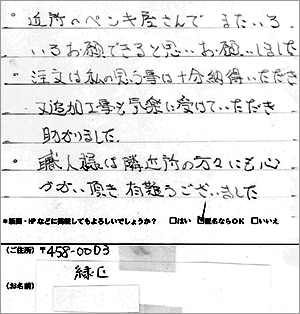 ・近所のペンキ屋さんで またいろ
いろお願いできると思いお願いしました
・注文は私の思う事は十分納得いただき
又追加工事も気楽に受けていただき
助かりました。
・職人様は隣近所の方々にも心
づかい頂き有難うございました
＊紙面・HPなどに掲載してもよろしいでしょうか？ □はい ☑匿名ならOK □いいえ
（ご住所）〒458-0003
緑区
（お名前）